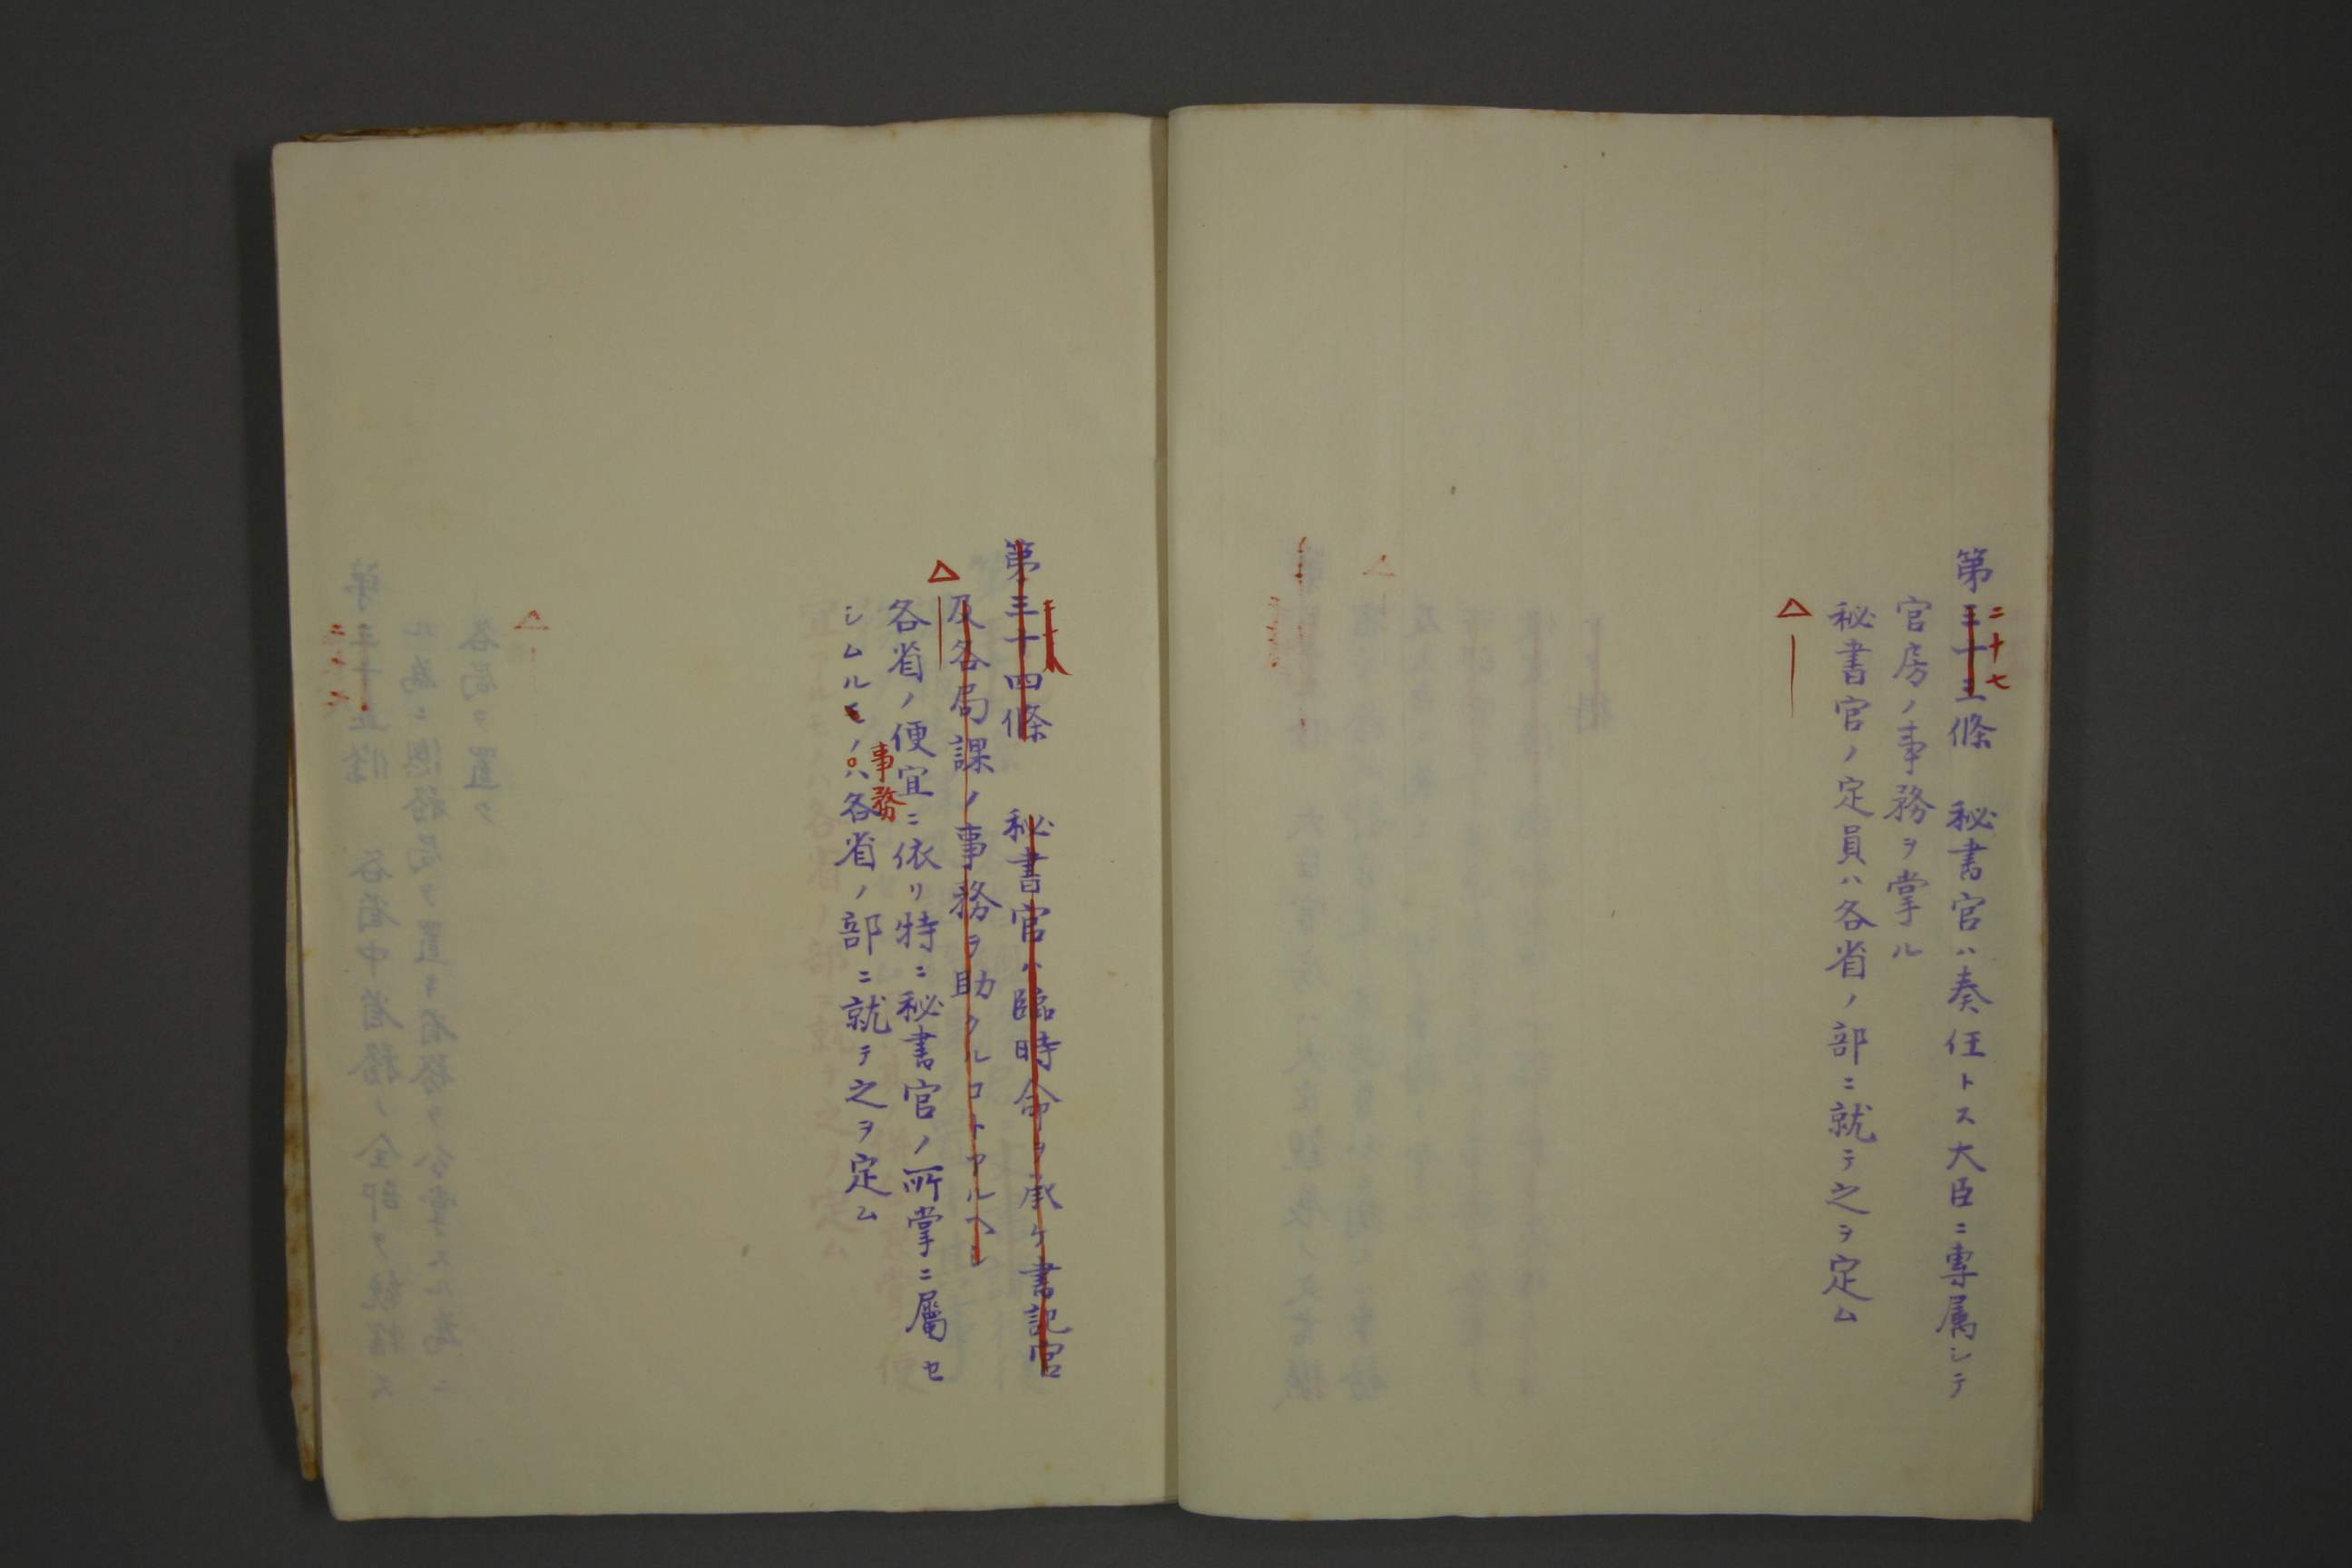 第三十三條 秘書官ハ奏任トス大臣ニ專属シテ
二十七
官房ノ事務ヲ掌ル
秘書官ノ定員ハ各省ノ部ニ就テ之ヲ定ム
△
第三十四條 秘書官ハ臨時命ヲ承ケ書記官
及各局課ノ事務ヲ助クルコトアルヘシ
△
各省ノ便宜ニ依リ特ニ秘書官ノ所掌ニ屬セ
事務
シムルモノハ各省ノ部ニ就テ之ヲ定ム